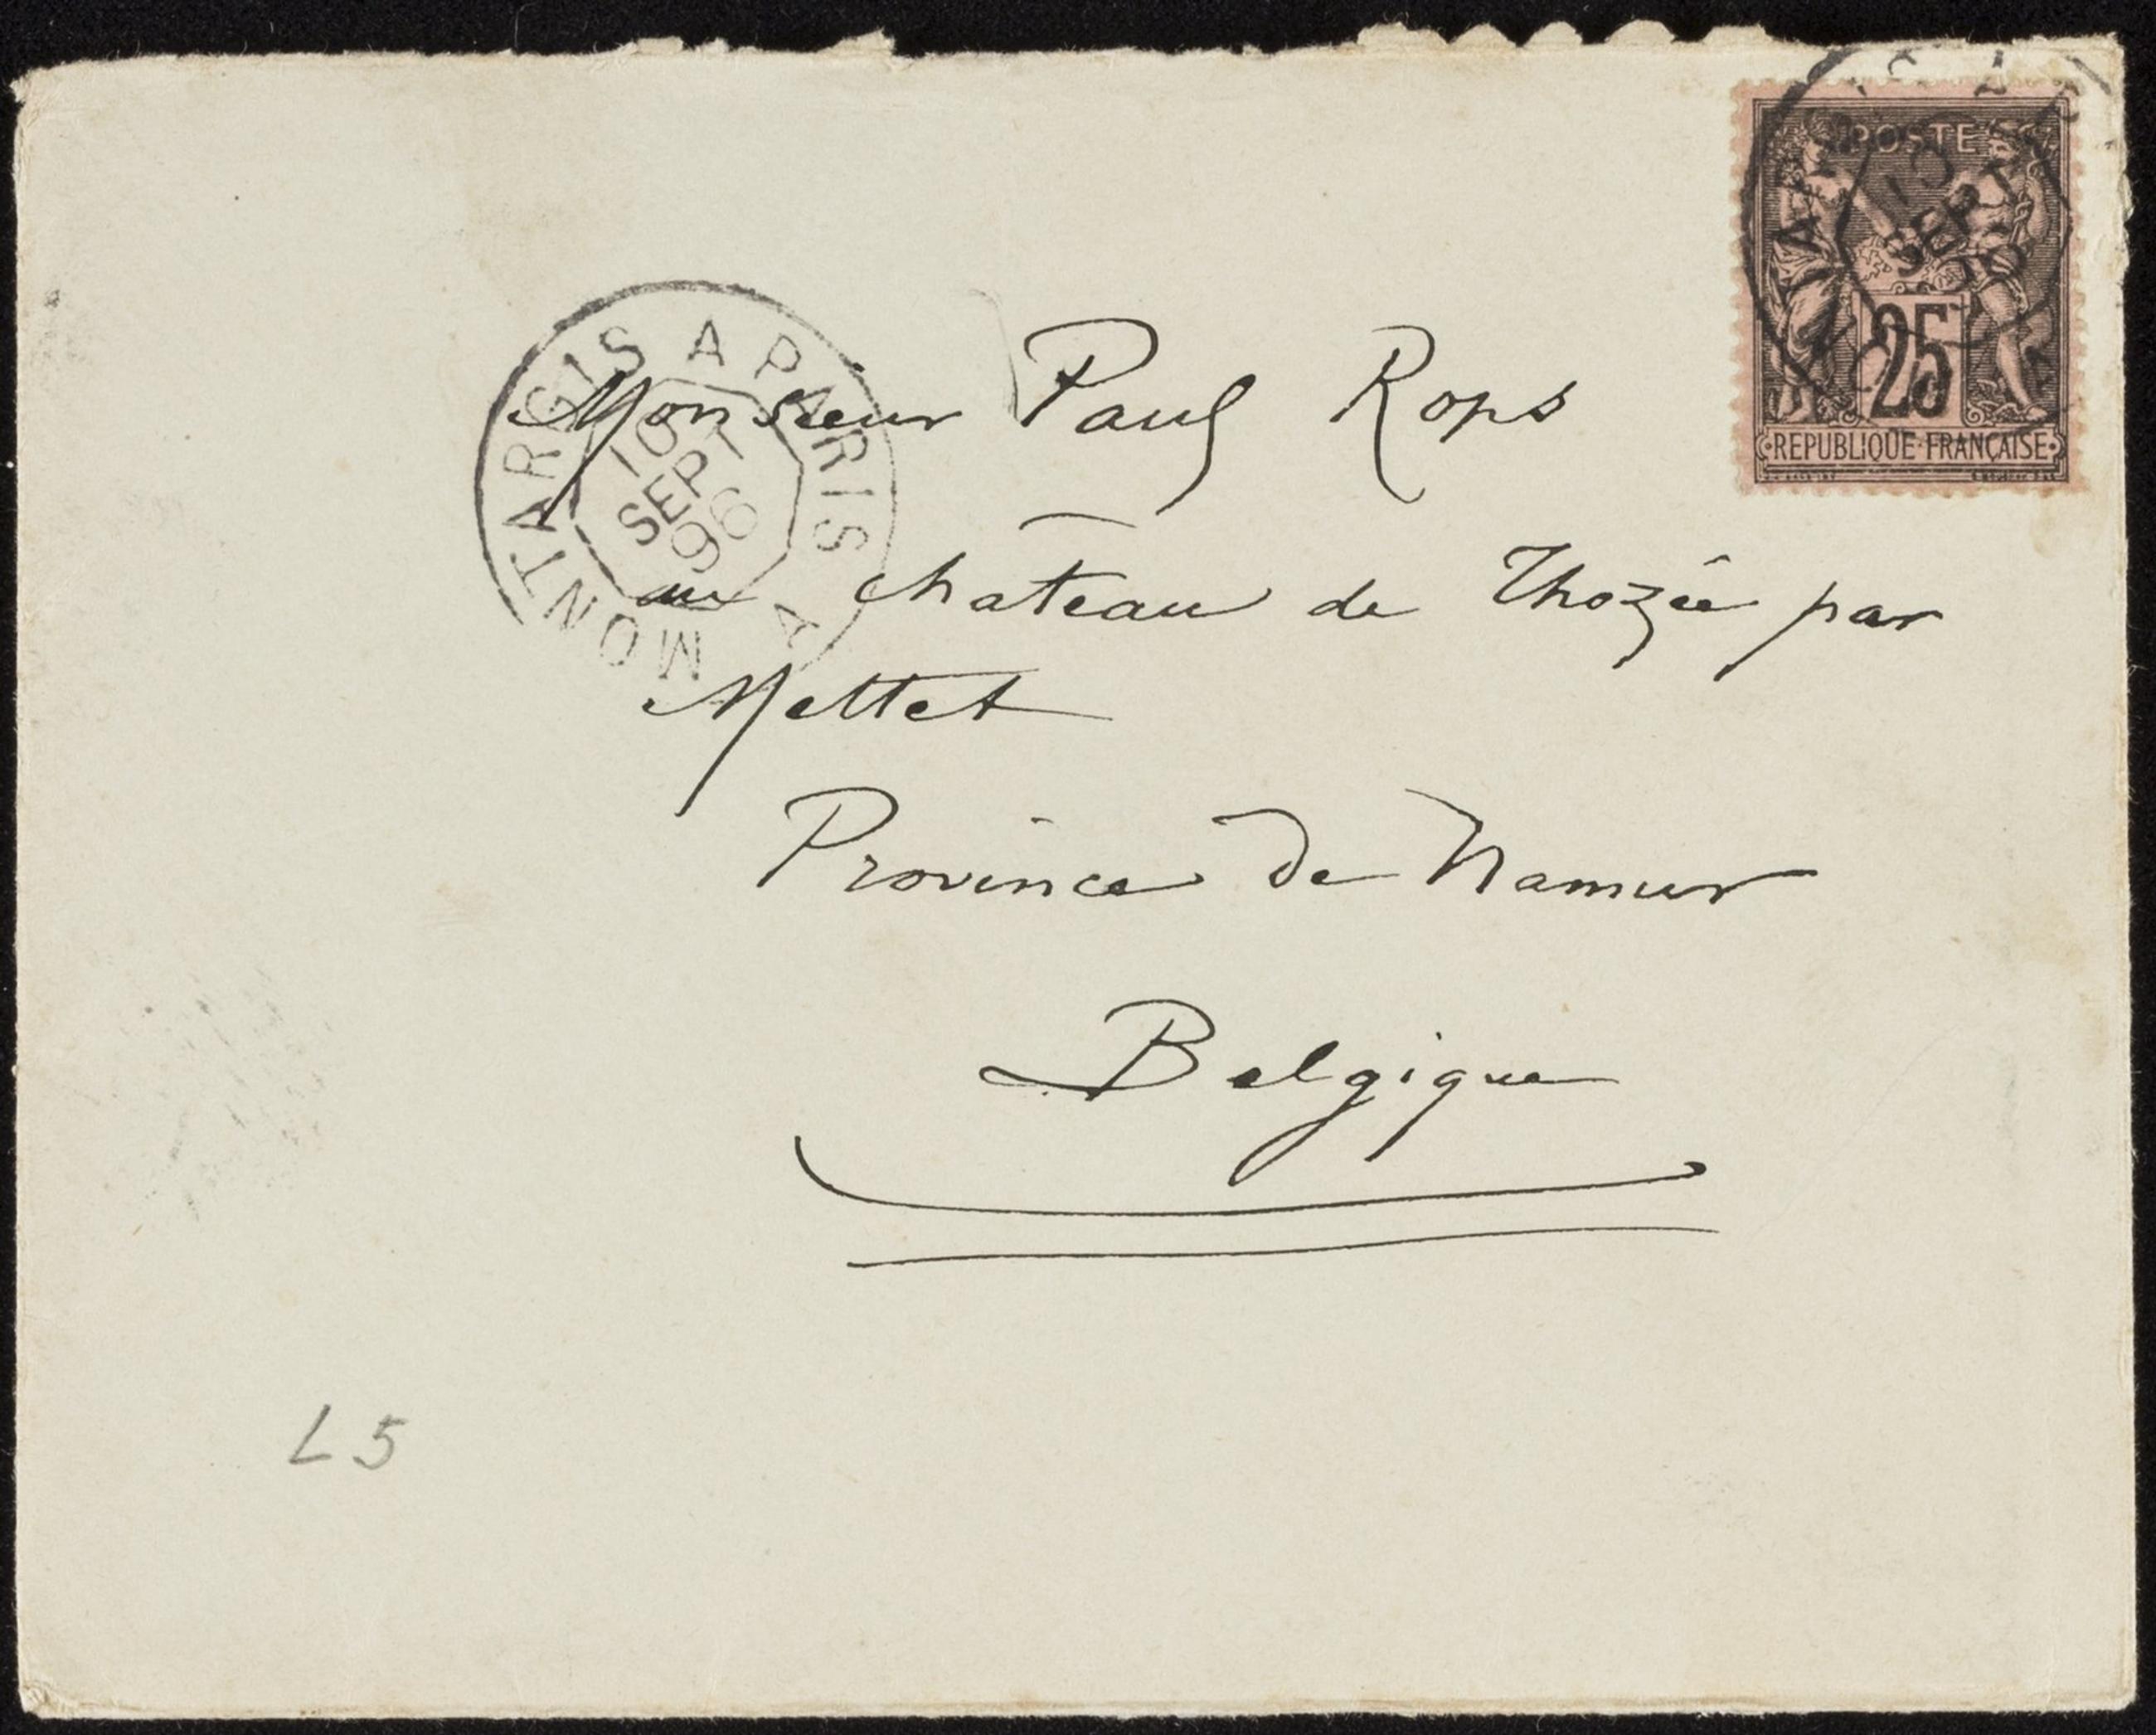 POSTE
25
REPUBLIQUE FRANÇAISE
MONTARGIS A PARIS A
10
SEPT
96
Monsieur Paul Rops
au chateau de Thozée par
Mettet
Province de Namur
Belgique
L5